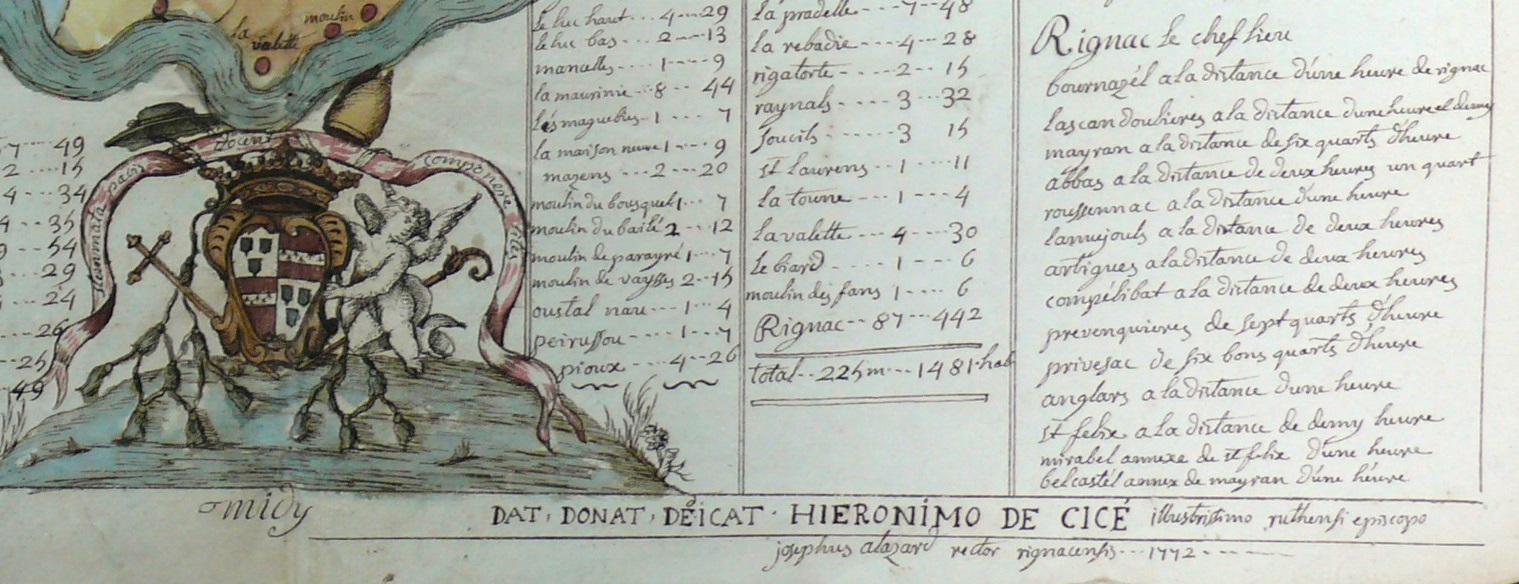 la valette
moulin
7 --- 49
2 --- 15
4 --- 34
4 --- 35
9 --- 54
--- 29
--- 24
--- 26
--- 25
49
stemmata pacis
docent
componere
lites
le luc haut --- 4 --- 29
le luc bas --- 2 --- 13
mancelles --- 1 --- 9
la maurinie -- 8 -- 44
les maguebies - 1 --- 7
la maison neuve 1 --- 9
mazens --- 2 --- 20
moulin du bousquet 1 -- 7
moulin du bailé 2 --- 12
moulin de parayré 1 -- 7
moulin de vaysses 2 -- 15
oustal nau --- 1 -- 4
peirussou --- 1 --- 7
pioux --- 4 --- 26
la pradelle --- 7 -- 48
la rebadie --- 4 --- 28
rigatorte ---- 2 -- 15
raynals --- 3 --- 32
soucils --- 3 15
st laurens -- 1 --- 11
la toune --- 1 --- 4
lavalette --- 4 --- 30
le biard --- 1 --- 6
moulin des fans 1 ---- 6
Rignac -- 87 --- 442
total -- 225 m --- 1481 hab
Rignac le chef lieu
bournazél a la distance d'une heure de rignac
lascandoulieres a la distance dune heure et demy
mayran a la distance de six quarts d'heure
abbas a la distance de deux heures un quart
roussennac a la distance d'une heure
lanuejouls a la distance de deux heures
artigues a la distance de deux heures
compélibat a la distance de deux heures
prevenquieres de sept quarts d'heure
privesac de six bons quarts d'heure
anglars a la distance dune heure
st felix a la distance de demy heure
mirabel annexe de st felix d'une heure
belcastél annex de mayran d'une heure
midy
DAT, DONAT, DEÌCAT · HIERONIMO DE CICÉ illustrissimo ruthensi episcopo
josephus alazard rector rignacensis --- 1772 ---